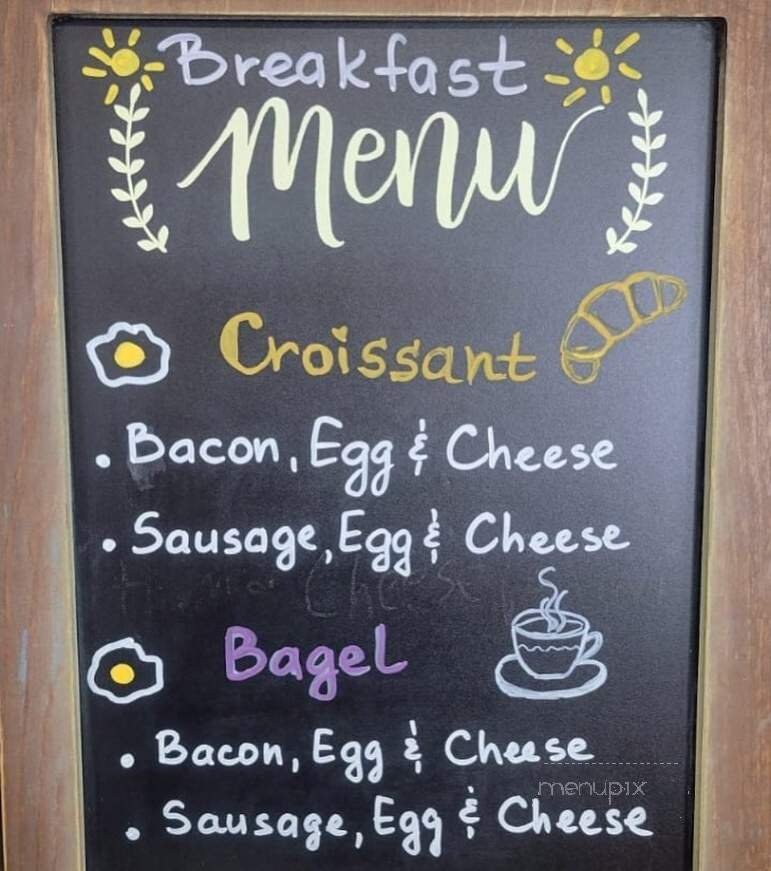 Breakfast
Menu
Croissant
• Bacon, Egg & Cheese
• Sausage, Egg & Cheese
Cheese
Bagel
• Bacon, Egg & Cheese
menupix
• Sausage, Egg & Cheese